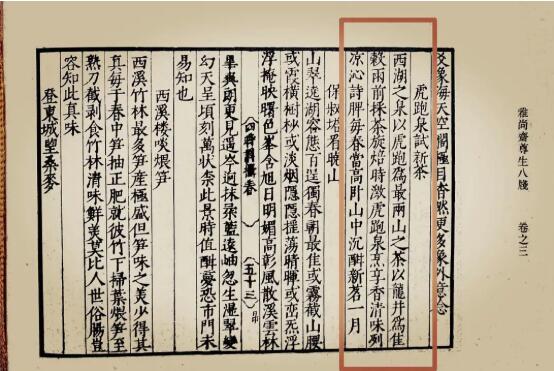 雅尚齋尊生八牋 卷之三
象海天空闊極目杳然更多象外意念
虎跑泉試新茶
西湖之泉以虎跑爲最兩山之茶以龍井爲佳
穀雨前採茶旋焙時激虎跑泉烹享香清味冽
凉沁詩脾每春當高卧山中沉酣新茗一月
保俶塔看曉山
山翠遶湖容態百逞獨春朝最佳或霧截山腰
或霞横樹杪或淡烟隱隱摇蕩晴暉或巒氣浮
浮掩映曙色峯含旭日明媚高彰風散溪雲林
四時調攝春 五十三
皋爽朗更見遥岑迥抹柔藍遠岫忽生濕翠變
幻天呈頃刻萬狀柰此景時值酣夢恐市門未
易知也
西溪樓啖煨笋
西溪竹林最多笋產極盛但笋味之美少得其
真每于春中笋抽正肥就彼竹下掃葉煨笋至
熟刀截剥食竹林清味鮮美莫比人世俗腸豈
容知此真味
登東城望桑麥